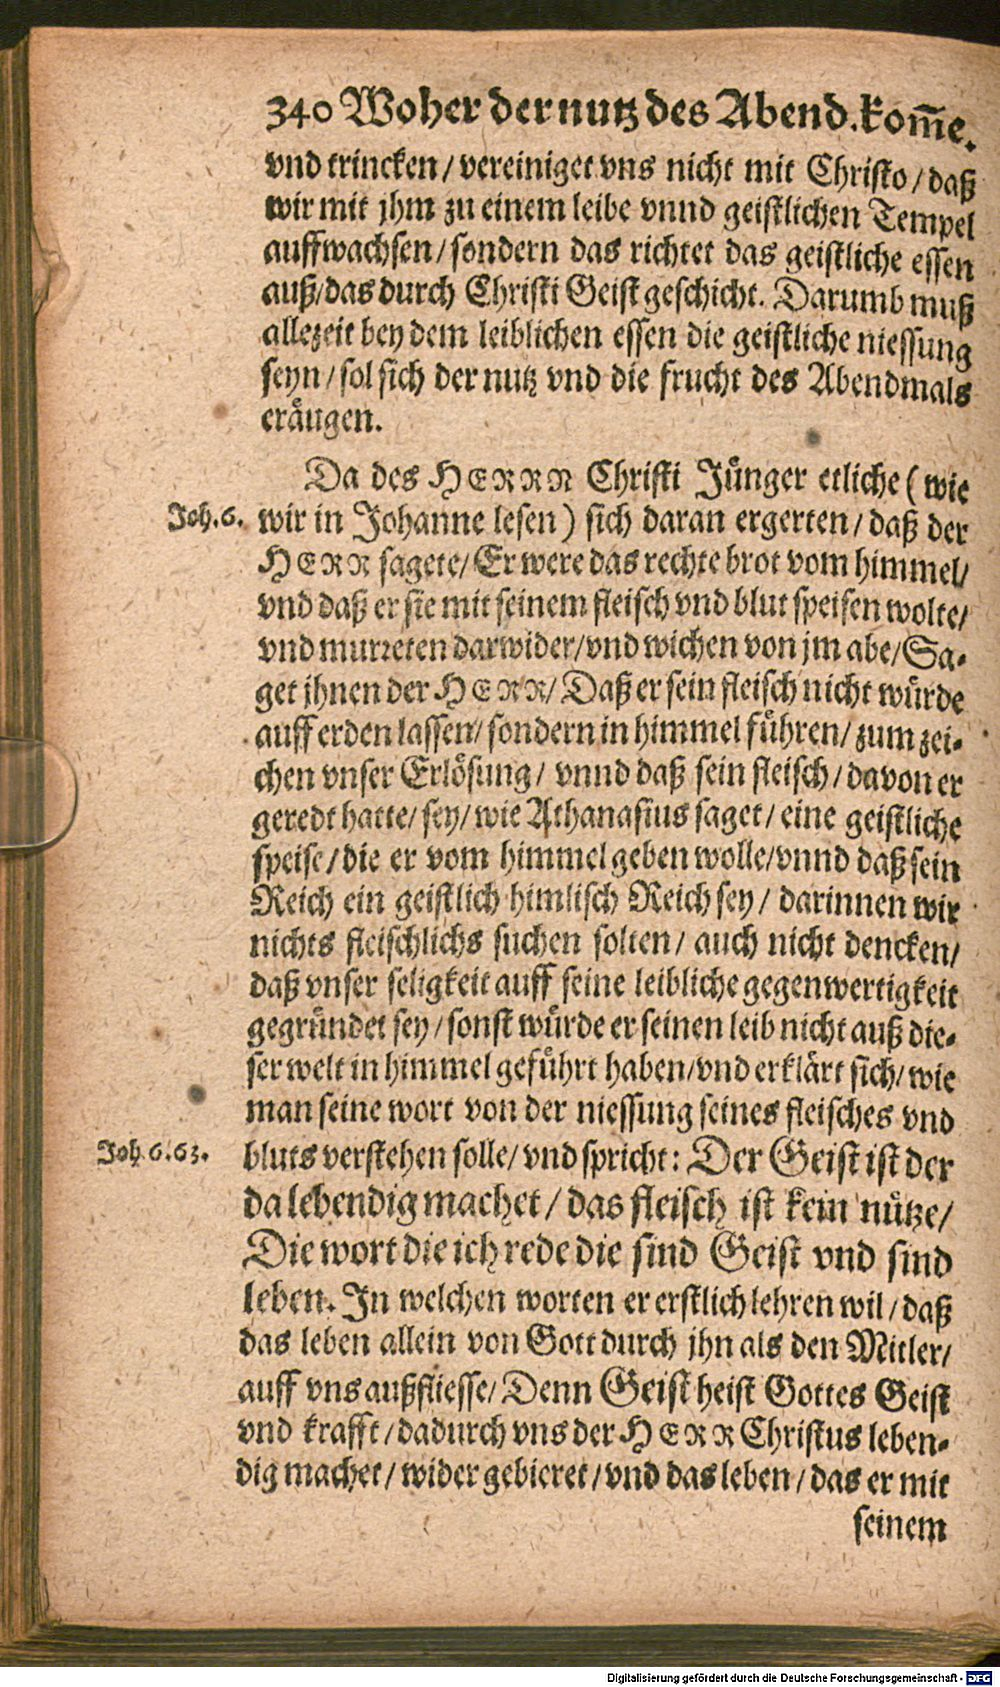 340 Woher der nutz des Abend. kom̄e.
vnd trincken / vereiniget vns nicht mit Christo / daß
wir mit jhm zu einem leibe vnnd geistlichen Tempel
auffwachsen / sondern das richtet das geistliche essen
auß / das durch Christi Geist geschicht. Darumb muß
allezeit bey dem leiblichen essen die geistliche niessung
seyn / sol sich der nutz vnd die frucht des Abendmals
eräugen.
Da des HERRN Christi Jünger etliche ( wie
Joh. 6. wir in Johanne lesen ) sich daran ergerten / daß der
HERR sagete / Er were das rechte brot vom himmel /
vnd daß er sie mit seinem fleisch vnd blut speisen wolte /
vnd murreten darwider / vnd wichen von jm abe / Sa-
get jhnen der HERR / Daß er sein fleisch nicht würde
auff erden lassen / sondern in himmel führen / zum zei-
chen vnser Erlösung / vnnd daß sein fleisch / davon er
geredt hatte / sey / wie Athanasius saget / eine geistliche
speise / die er vom himmel geben wolle / vnnd daß sein
Reich ein geistlich himlisch Reich sey / darinnen wir
nichts fleischlichs suchen solten / auch nicht dencken /
daß vnser seligkeit auff seine leibliche gegenwertigkeit
gegründet sey / sonst würde er seinen leib nicht auß die-
ser welt in himmel geführt haben / vnd erklärt sich / wie
man seine wort von der niessung seines fleisches vnd
Joh. 6. 63. bluts verstehen solle / vnd spricht : Der Geist ist der
da lebendig machet / das fleisch ist kein nütze /
Die wort die ich rede die sind Geist vnd sind
leben. In welchen worten er erstlich lehren wil / daß
das leben allein von Gott durch jhn als den Mitler /
auff vns außfliesse / Denn Geist heist Gottes Geist
vnd krafft / dadurch vns der HERR Christus leben-
dig machet / wider gebieret / vnd das leben / das er mit
seinem
Digitalisierung gefördert durch die Deutsche Forschungsgemeinschaft - DFG